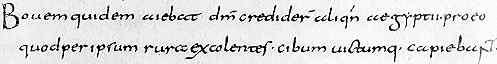 Bovem quidem aiebat dm̄ credider̄ aliqn̄ aegyptii. pro eo
quod per ipsum rura excolentes. cibum victumq. capiebant.